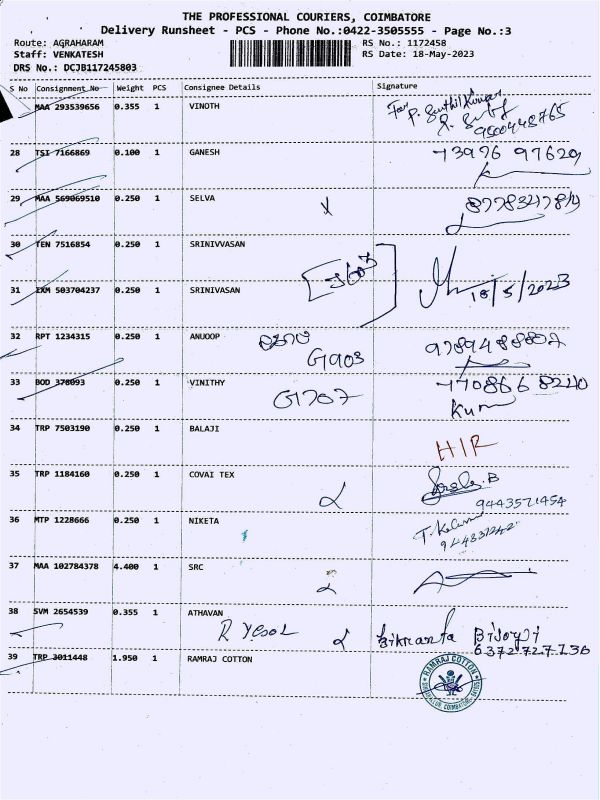 THE PROFESSIONAL COURIERS, COIMBATORE
Delivery Runsheet - PCS - Phone No.:0422-3505555 - Page No.:3
Route: AGRAHARAM
RS No.: 1172458
Staff: VENKATESH
RS Date: 18-May-2023
DRS No.: DCJB117245803
S No Consignment No Weight PCS Consignee Details Signature
MAA 293539656 0.355 1 VINOTH
For P. Senthil Kumar
9600448765
28 TSI 7166869 0.100 1 GANESH
73976 97620
29 MAA 569069510 0.250 1 SELVA
30 TEN 7516854 0.250 1 SRINIVVASAN
31 IXM 503704237 0.250 1 SRINIVASAN
18/5/2023
32 RPT 1234315 0.250 1 ANUOOP
G1903
9789488807
33 BOD 378093 0.250 1 VINITHY
G1707
770866 8240
34 TRP 7503190 0.250 1 BALAJI
H/R
35 TRP 1184160 0.250 1 COVAI TEX
9443571454
36 MTP 1228666 0.250 1 NIKETA
37 MAA 102784378 4.400 1 SRC
38 SVM 2654539 0.355 1 ATHAVAN
6372727136
39 TRP 3011448 1.950 1 RAMRAJ COTTON
RAMRAJ COTTON